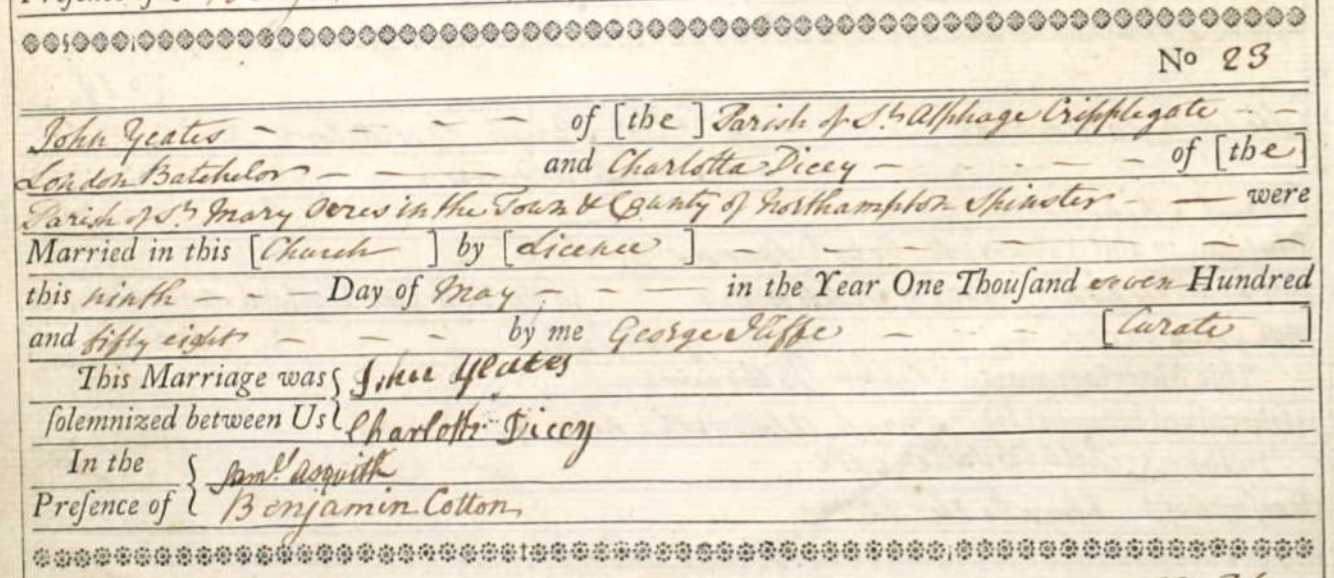 No 23
John Yeates - - - - of [the] Parish of St. Alphage Cripplegate - -
London Batchelor - - - and Charlotta Dicey - - - - of [the]
Parish of St. Mary in the Town & County of Northampton Spinster - - were
Married in this [Church] by [Licence] - - - - - -
this ninth - - Day of May - - - in the Year One Thouſand seven Hundred
and fifty eight - - - by me George Iliffe - - - [Curate]
This Marriage was { John Yeates
ſolemnized between Us { Charlotta Dicey
In the { Saml. Asquith
Preſence of { Benjamin Cotton